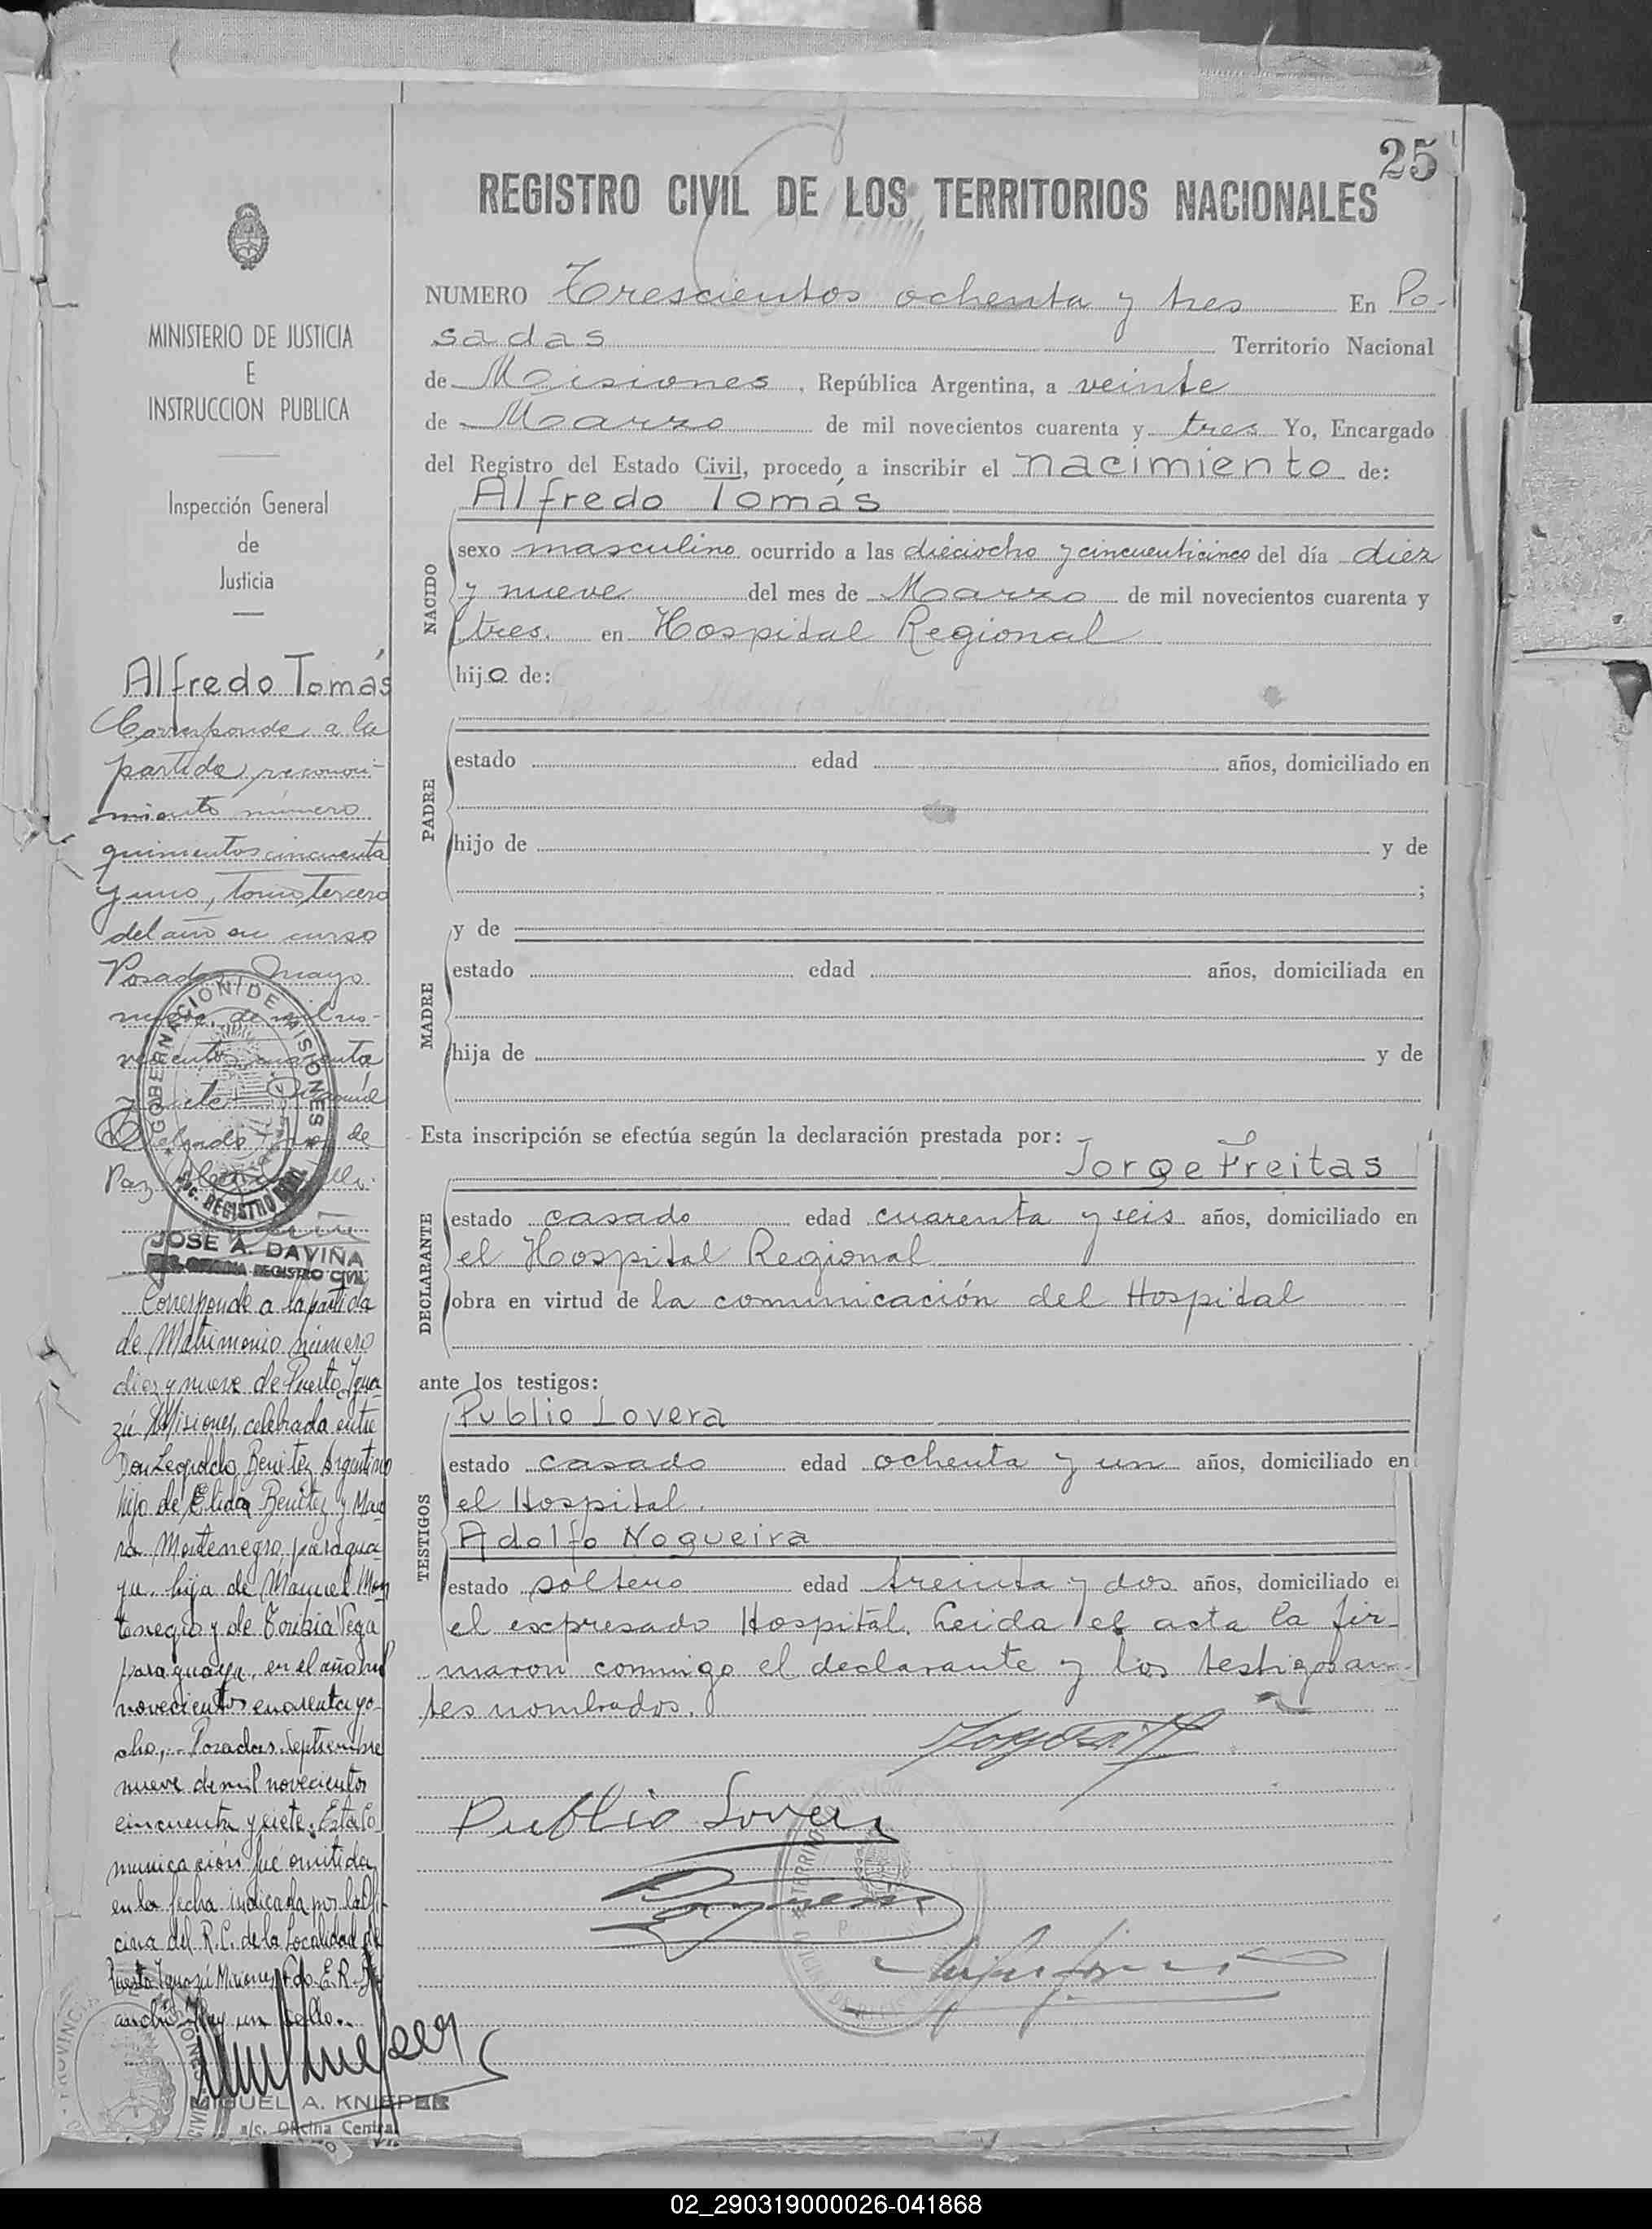 25
REGISTRO CIVIL DE LOS TERRITORIOS NACIONALES
NUMERO Trescientos ochenta y tres En Po-
sadas Territorio Nacional
de Misiones, República Argentina, a veinte
de Marzo de mil novecientos cuarenta y tres Yo, Encargado
del Registro del Estado Civil, procedo a inscribir el nacimiento de:
Alfredo Tomás
NACIDO
sexo masculino ocurrido a las dieciocho y cincuenticinco del día diez
y nueve del mes de Marzo de mil novecientos cuarenta y
tres. en Hospital Regional
hijo de:
PADRE
estado edad años, domiciliado en
hijo de y de
;
y de
MADRE
estado edad años, domiciliada en
hija de y de
Esta inscripción se efectúa según la declaración prestada por:
Jorge Freitas
DECLARANTE
estado casado edad cuarenta y seis años, domiciliado en
el Hospital Regional
obra en virtud de la comunicación del Hospital
ante los testigos:
Publio Lovera
TESTIGOS
estado casado edad ochenta y un años, domiciliado en
el Hospital.
Adolfo Nogueira
estado soltero edad treinta y dos años, domiciliado e
el expresado Hospital. Leida el acta la fir-
maron conmigo el declarante y los testigos an-
tes nombrados.
Publio Lovera
MINISTERIO DE JUSTICIA
E
INSTRUCCION PUBLICA
Inspección General
de
Justicia
Alfredo Tomás
Corresponde a la
partida, reconoci-
miento número
quinientos cincuenta
y uno, Tomo, tercero
del año en curso
Posadas, Mayo
nueve, de mil no-
vecientos cuarenta
y siete
Delgado de
Paz
GOBERNACION DE MISIONES
REGISTRO CIVIL
JOSE A. DAVIÑA
OFICINA REGISTRO CIVIL
Corresponde a la partida
de Matrimonio número
diez y nueve de Puerto Igua-
zú Misiones, celebrada entre
Don Leopoldo Benitez Argentino
hijo de Elida Benitez y Mau-
ra Montenegro, paragua-
ya. hija de Manuel Mon
tenegro y de Toribia Vega
paraguaya, en el año mil
novecientos cuarenta y o-
cho,- Posadas, Septiembre
nueve de mil novecientos
cincuenta y siete. Esta Co
municación fué omitida
en la fecha indicada por la Ofi-
cina del R.C. de la Localidad de
Puerto Iguazú Misiones, Fdo. E. R.
Hay un sello.
MIGUEL A. KNIEPER
a/c. Oficina Central
02_290319000026-041868